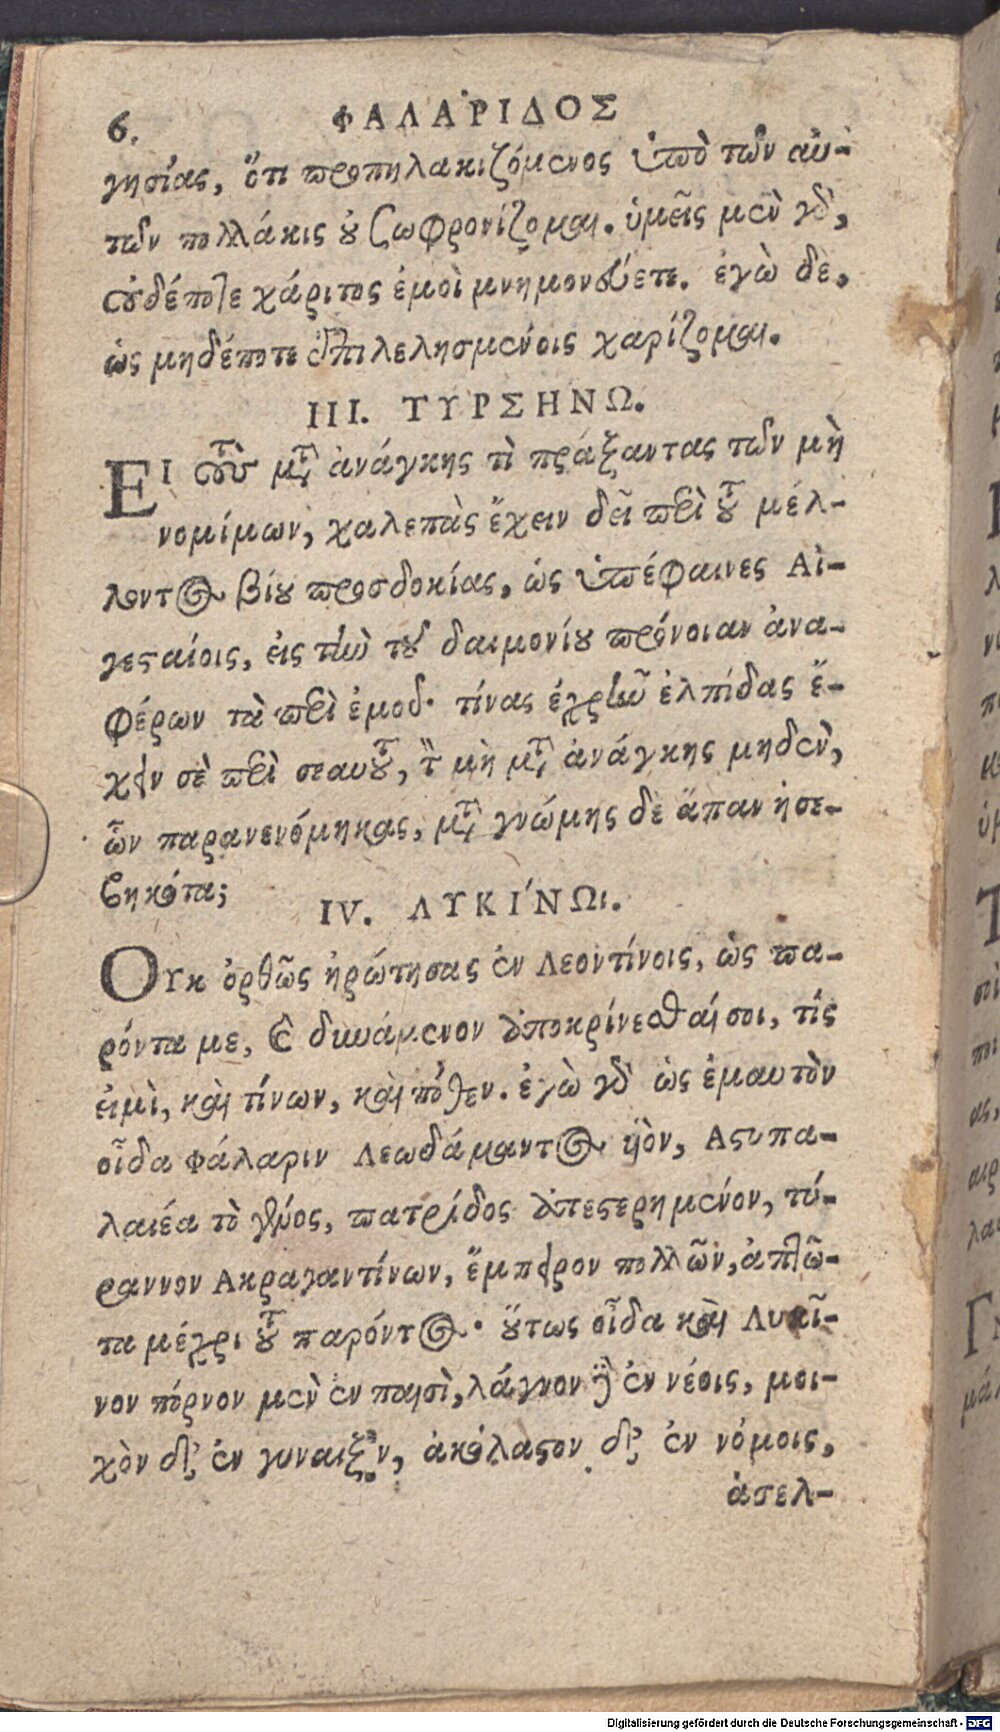 6. ΦΑΛΑΡΙΔΟΣ
γησίας, ὅτι προπηλακιζόμενος ὑπὸ τῶν αὐ-
τῶν πολλάκις οὐ σωφρονίζομαι. ὑμεῖς μὲν γὰρ,
οὐδέποτε χάριτος ἐμοὶ μνημονεύετε. ἐγὼ δὲ,
ὡς μηδέποτε ἐπιλελησμένοις χαρίζομαι.
III. ΤΥΡΣΗΝΩ.
ΕΙ τοὺς μετ' ἀνάγκης τὶ πράξαντας τῶν μὴ
νομίμων, χαλεπὰς ἔχειν δεῖ περὶ τοῦ μέλ-
λοντος βίου προσδοκίας, ὡς ὑπέφαινες Αἰ-
γεσταίοις, εἰς τὴν τοῦ δαιμονίου πρόνοιαν ἀνα-
φέρων τὰ περὶ ἐμοῦ· τίνας ἐχρῆν ἐλπίδας ἔ-
χειν σὲ περὶ σεαυτοῦ, τὸν μὴ μετ' ἀνάγκης μηδὲν,
ὧν παρανενόμηκας, μετὰ γνώμης δὲ ἅπαν ἠσε-
βηκότα;
IV. ΛΥΚΙΝΩι.
ΟΥκ ὀρθῶς ἠρώτησας ἐν Λεοντίνοις, ὡς πα-
ρόντα με, καὶ δυνάμενον ἀποκρίνεσθαί σοι, τίς
εἰμὶ, καὶ τίνων, καὶ πόθεν. ἐγὼ γὰρ ὡς ἐμαυτὸν
οἶδα Φάλαριν Λεωδάμαντος ὑὸν, Αστυπα-
λαιέα τὸ γένος, πατρίδος ἀπεστερημένον, τύ-
ραννον Ακραγαντίνων, ἔμπειρον πολλῶν, ἀπλῶ-
τα μέχρι τοῦ παρόντος· οὕτως οἶδα καὶ Λυκῖ-
νον πόρνον μὲν ἐν παισὶ, λάγνον δὲ ἐν νέοις, μοι-
χὸν δὲ ἐν γυναιξὶν, ἀκόλαστον δὲ ἐν νόμοις,
ἀσελ-
Digitalisierung gefördert durch die Deutsche Forschungsgemeinschaft - DFG